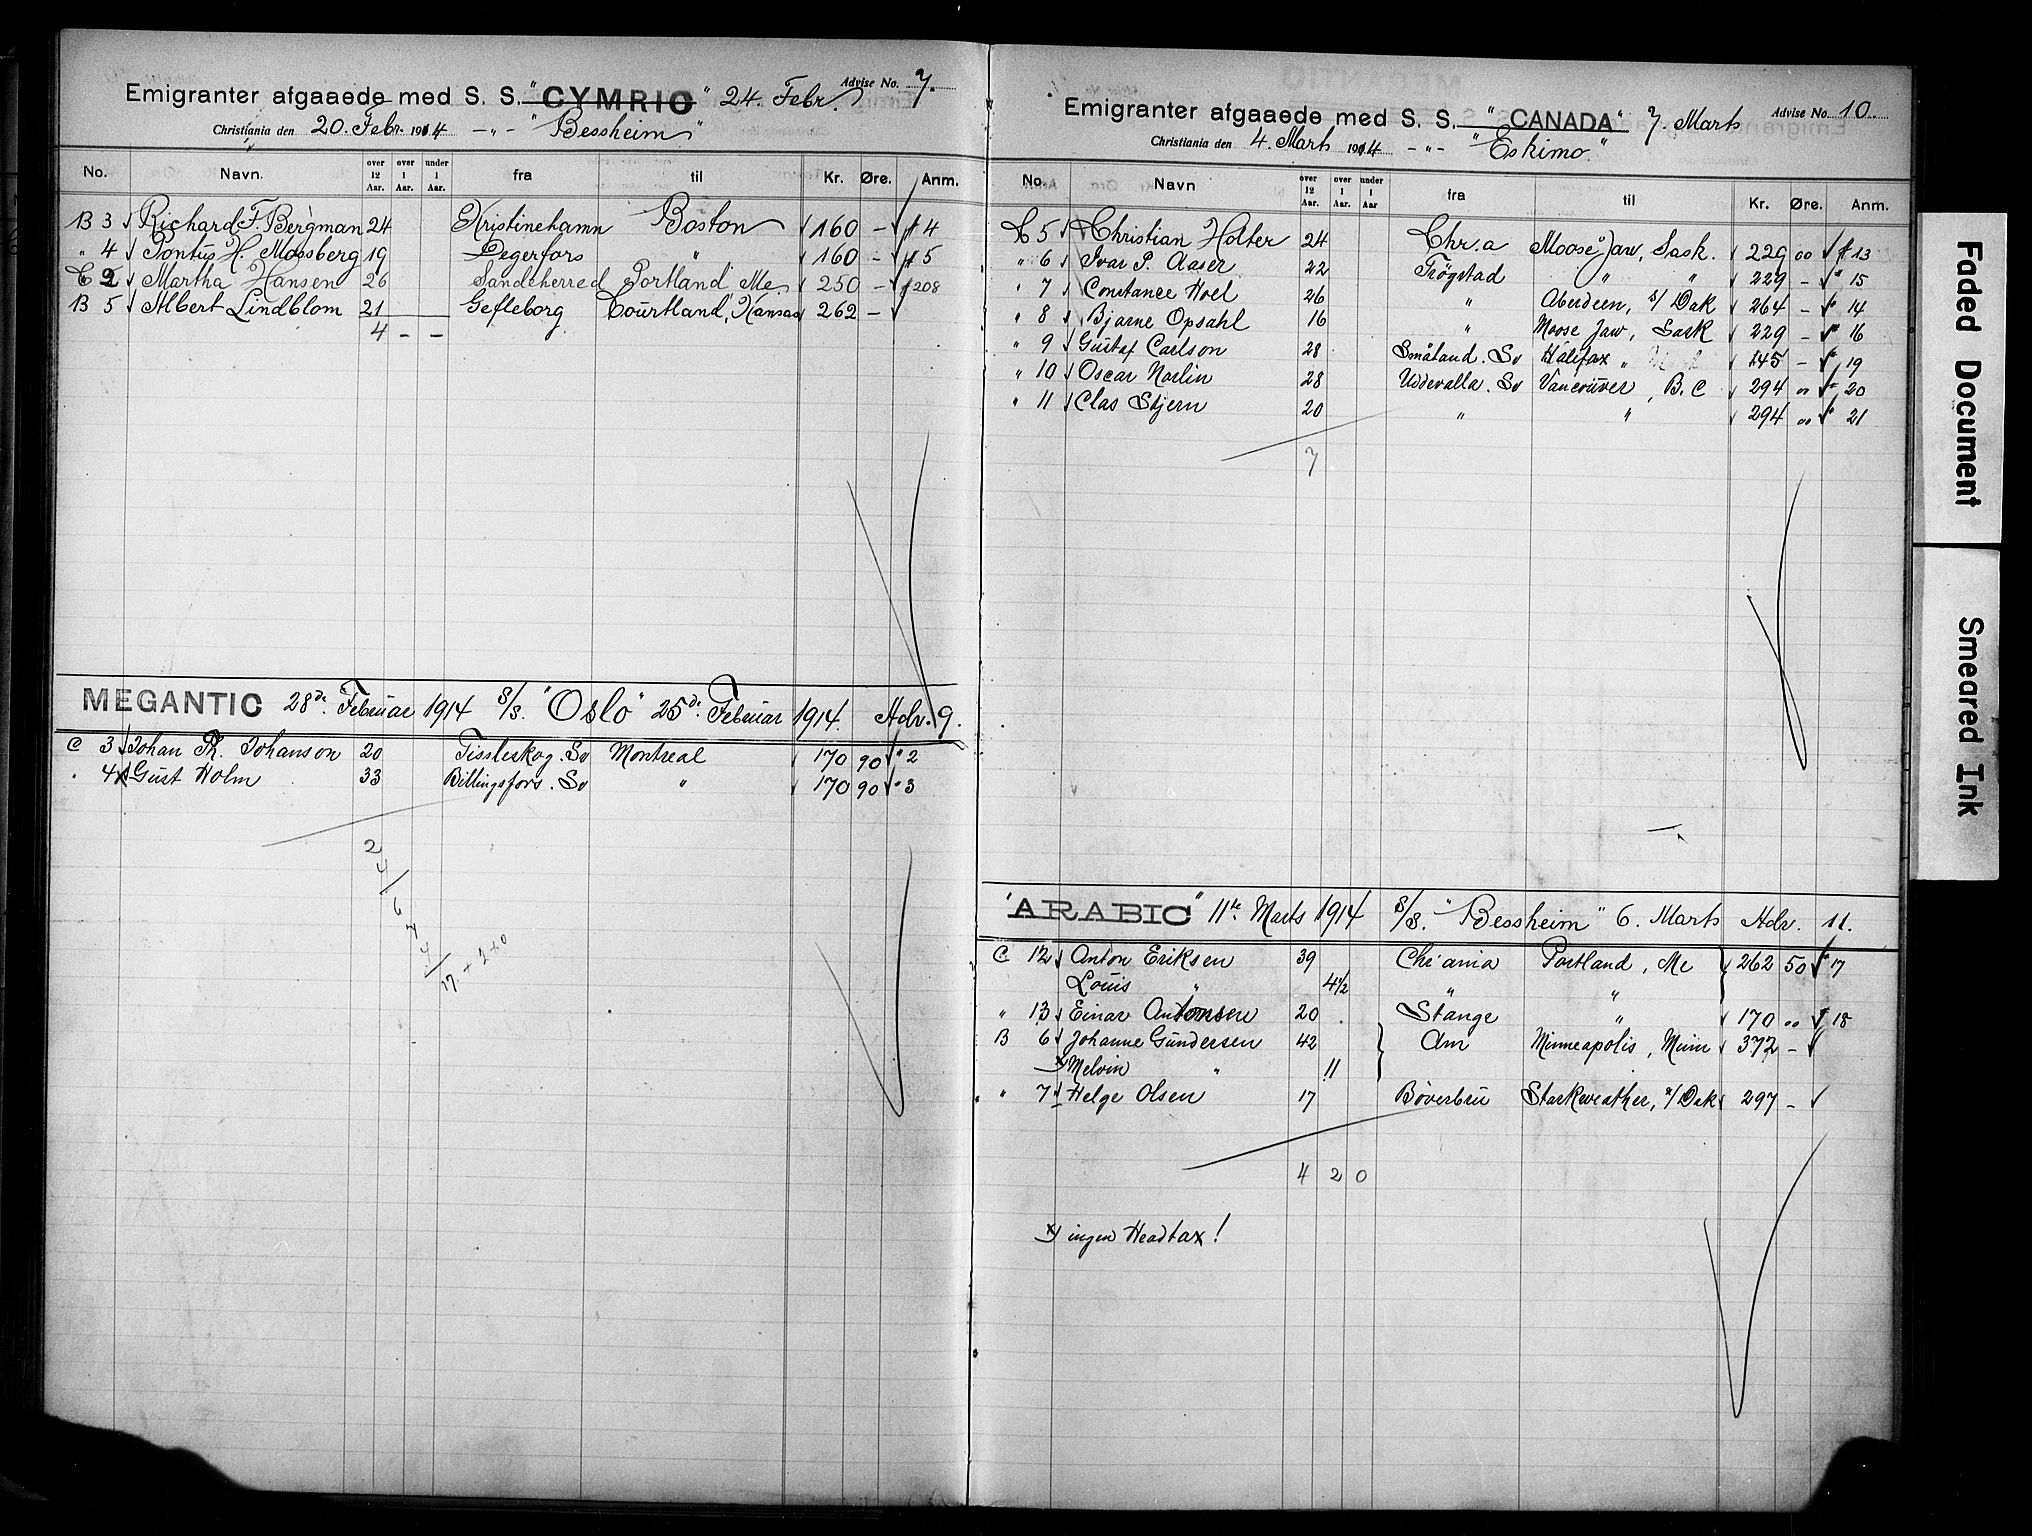 Emigranter afgaaede med S. S. "CYMRIC" 24. Febr. Advise No. 7.
Christiania den 20. Febr. 1914 -"- "Bessheim"
No. Navn. over 12 Aar. over 1 Aar. under 1 Aar. fra til Kr. Øre. Anm.
B 3 Richard F. Bergman 24 Kristinehamn Boston 160 - # 4
" 4 Pontus H. Mossberg 19 Degerfors " 160 - # 5
C 2 Martha Hansen 26 Sandeherred Portland Me. 250 - # 208
B 5 Albert Lindblom 21 Gefleborg Courtland, Kansas 262 -
4 - -
MEGANTIC 28de Februar 1914 S/S. "Oslo" 25de Februar 1914. Adv. 9.
C 3 Johan Th. Johanson 20 Tissleskog. Sv Montreal 170 90 " 2
" 4 x Gust Holm 33 Billingsfors. Sv " 170 90 " 3
2
4
6
7
4
17 + 2 + 0
Emigranter afgaaede med S. S. "CANADA" 7. Marts Advise No. 10
Christiania den 4. Marts 1914 -"- "Eskimo"
No. Navn over 12 Aar. over 1 Aar. under 1 Aar fra til Kr. Øre. Anm.
C 5 Christian Holter 24 Chr.a Moose Jaw, Sask. 229 00 # 13
" 6 Ivar P. Aaser 22 Trøgstad " " 229 - " 15
" 7 Constance Hoel 26 " Aberdeen, S/Dak 264 - " 14
" 8 Bjarne Opsahl 16 " Moose Jaw, Sask 229 - " 16
" 9 Gustaf Carlson 28 Småland. Sv Halifax " 145 - " 19
" 10 Oscar Norlin 28 Uddevalla. Sv Vancouver, B.C 294 " " 20
" 11 Clas Stjern 20 " " 294 00 " 21
7
"ARABIC" 11te Marts 1914 S/S. "Bessheim" 6. Marts Adv. 11.
C 12 Anton Eriksen 39 Chr'ania Portland, Me 262 50 " 17
Louis " 4½ " "
" 13 Einar Antonsen 20 Stange " 170 00 # 18
B 6 Johanne Gundersen 42 Am Minneapolis, Minn 372 -
x) Melvin " 11
" 7 Helge Olsen 17 Bøverbru Starkweather, N/Dak 297 -
4 2 0
x) ingen Headtax!
Faded Document
Smeared Ink